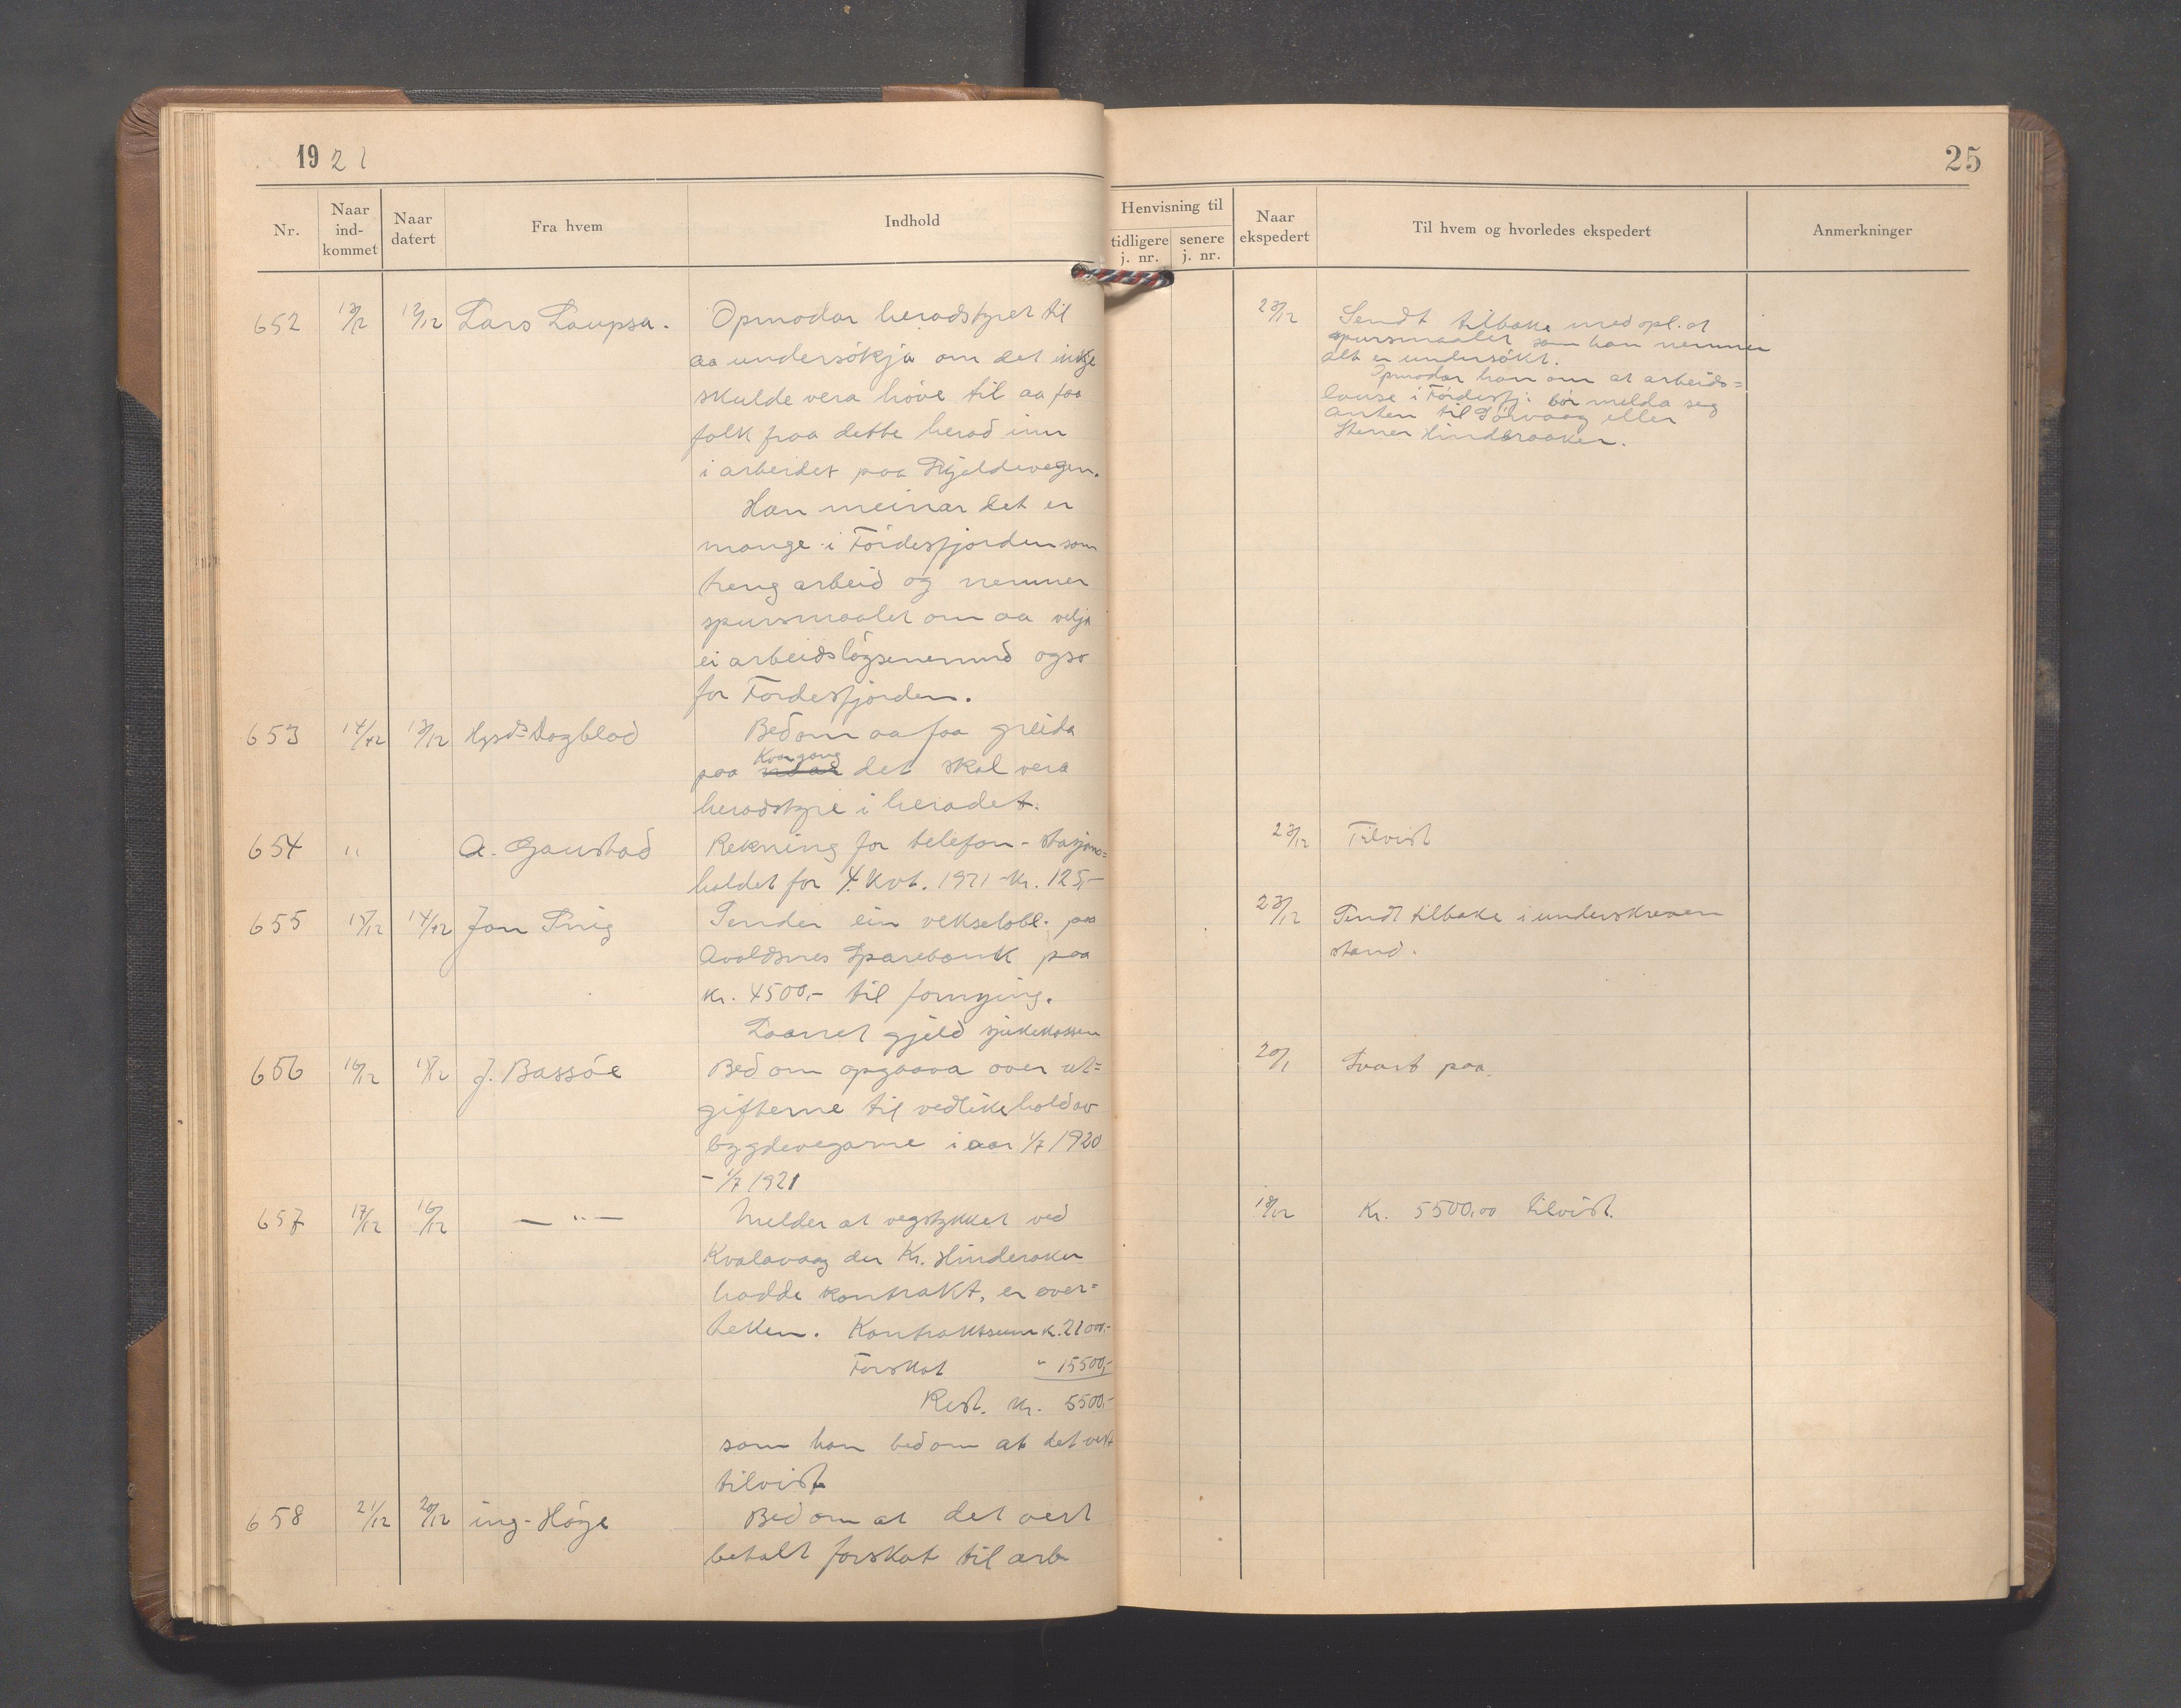 1921
25
Nr.
Naar ind-kommet
Naar datert
Fra hvem
Indhold
Henvisning til
tidligere j. nr.
senere j. nr.
Naar ekspedert
Til hvem og hvorledes ekspedert
Anmerkninger
652 13/12 12/12 Lars Laupsa. Opmodar heradstyret til
aa undersökja om det inkje
skulde vera höve til aa faa
folk fraa dette herad inn
i arbeidet paa
Han meinar det er
mange i Fördesfjorden som
treng arbeid og nemner
spursmaalet om aa velja
ei arbeidslögsenemnd ogso
for Fördesfjorden.
23/12 Sendt tilbake med opl. at
spursmaalet som han nemner
alt er undersökt.
Opmodar han om at arbeids=
lause i Fördesfj. bör melda seg
anten til Törvaag eller
Stener Hinderaaker.
653 14/12 13/12 Hgsds Dagblad Bed om aa faa greida
paa Kvar gong det skal vera
heradstyre i heradet.
654 " A. Gaustad Rekning for telefon-stasjons=
haldet for 4. kvt. 1921 - kr. 125,-
23/12 Tilvist
655 15/12 14/12 Jon Sender ein vekselobl. paa
Avaldsnes Sparebank paa
kr. 4500,- til fornying.
Laanet gjeld sjukekassen
23/12 Sendt tilbake i underskreven
stand.
656 16/12 15/12 J. Bassöe Bed om opgaava over ut=
gifterne til vedlikehold av
bygdevegarne i aar 1/7 1920
- 1/7 1921
20/1 Svart paa.
657 17/12 16/12 — " — Melder at vegstykket ved
Kvalavaag der Kr. Hinderaker
hadde kontrakt, er over=
teken. Kontraktsum k. 21000,-
Forskot " 15500,-
Rest. kr. 5500,-
som han bed om at det vert
tilvist
18/12 Kr. 5500,00 tilvist.
658 21/12 20/12 ing. Höye Bed om at det vert
betalt forskot til arb